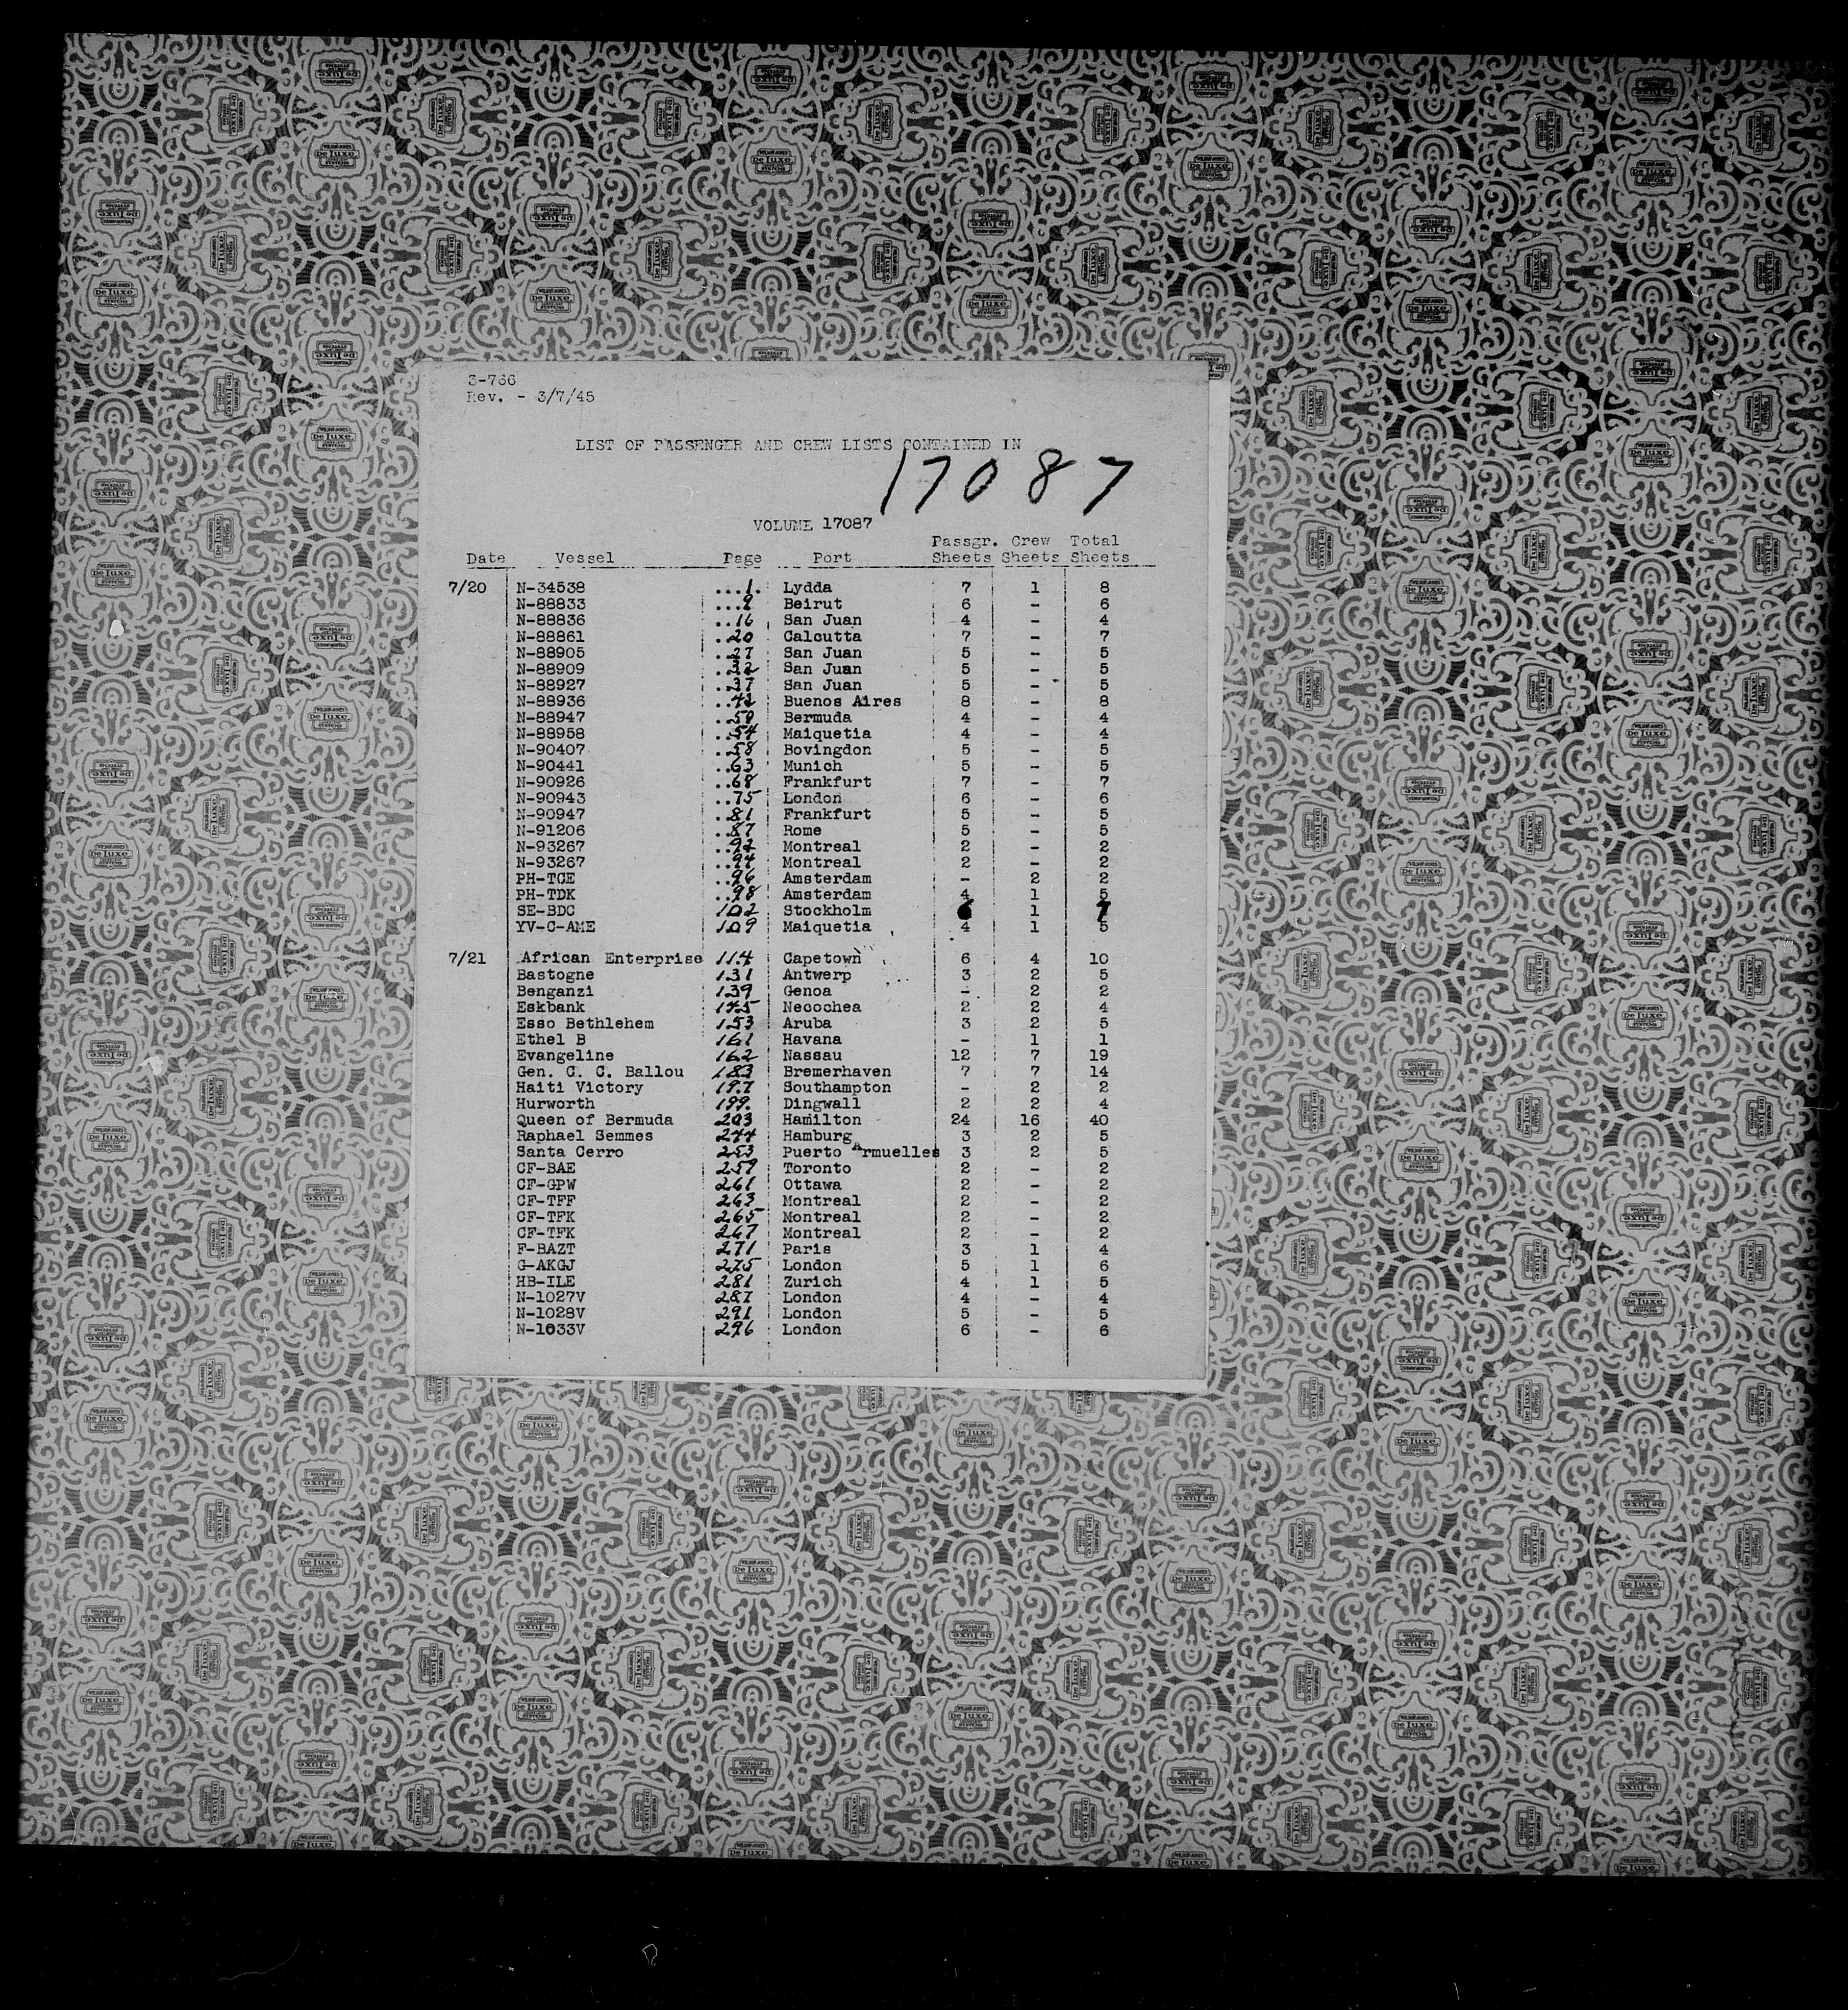 3-766
Rev. - 3/7/45
LIST OF PASSENGER AND CREW LISTS CONTAINED IN
17087
VOLUME 17087
Passgr. Crew Total
Date Vessel Page Port Sheets Sheets Sheets
7/20 N-34538 ...1. Lydda 7 1 8
N-88833 ...9 Beirut 6 - 6
N-88836 ..16 San Juan 4 - 4
N-88861 ..20 Calcutta 7 - 7
N-88905 ..27 San Juan 5 - 5
N-88909 ..32 San Juan 5 - 5
N-88927 ..37 San Juan 5 - 5
N-88936 ..42 Buenos Aires 8 - 8
N-88947 ..50 Bermuda 4 - 4
N-88958 ..54 Maiquetia 4 - 4
N-90407 ..58 Bovingdon 5 - 5
N-90441 ..63 Munich 5 - 5
N-90926 ..68 Frankfurt 7 - 7
N-90943 ..75 London 6 - 6
N-90947 ..81 Frankfurt 5 - 5
N-91206 ..87 Rome 5 - 5
N-93267 ..92 Montreal 2 - 2
N-93267 ..94 Montreal 2 - 2
PH-TCE ..96 Amsterdam - 2 2
PH-TDK ..98 Amsterdam 4 1 5
SE-BDC 102 Stockholm 6 1 7
YV-C-AME 109 Maiquetia 4 1 5
7/21 African Enterprise 114 Capetown 6 4 10
Bastogne 131 Antwerp 3 2 5
Benganzi 139 Genoa - 2 2
Eskbank 145 Necochea 2 2 4
Esso Bethlehem 153 Aruba 3 2 5
Ethel B 161 Havana - 1 1
Evangeline 162 Nassau 12 7 19
Gen. C. C. Ballou 183 Bremerhaven 7 7 14
Haiti Victory 197 Southampton - 2 2
Hurworth 199. Dingwall 2 2 4
Queen of Bermuda 203 Hamilton 24 16 40
Raphael Semmes 244 Hamburg 3 2 5
Santa Cerro 253 Puerto Armuelles 3 2 5
CF-BAE 259 Toronto 2 - 2
CF-GPW 261 Ottawa 2 - 2
CF-TFF 263 Montreal 2 - 2
CF-TFK 265 Montreal 2 - 2
CF-TFK 267 Montreal 2 - 2
F-BAZT 271 Paris 3 1 4
G-AKGJ 275 London 5 1 6
HB-ILE 281 Zurich 4 1 5
N-1027V 287 London 4 - 4
N-1028V 291 London 5 - 5
N-1033V 296 London 6 - 6